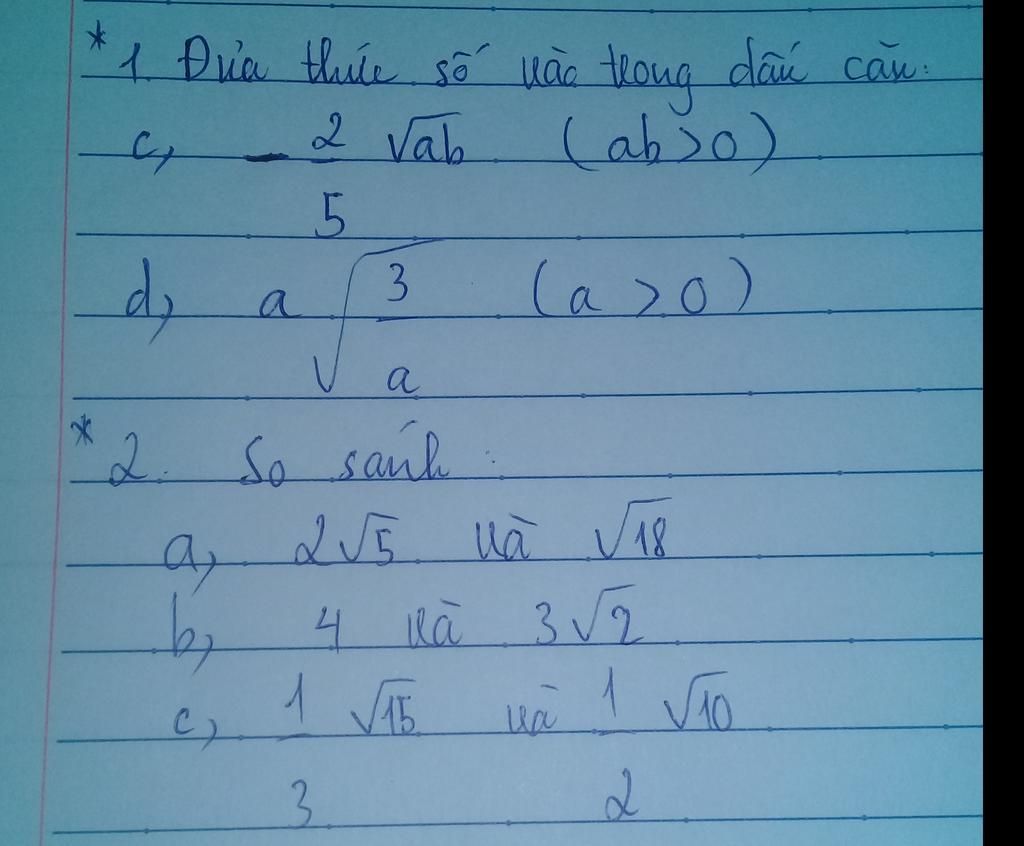 * 1. Đưa thừa số vào trong dấu căn:
c, - 2/5 √ab (ab > 0)
d, a √(3/a) (a > 0)
* 2. So sánh:
a, 2√5 và √18
b, 4 và 3√2
c, 1/3 √15 và 1/2 √10